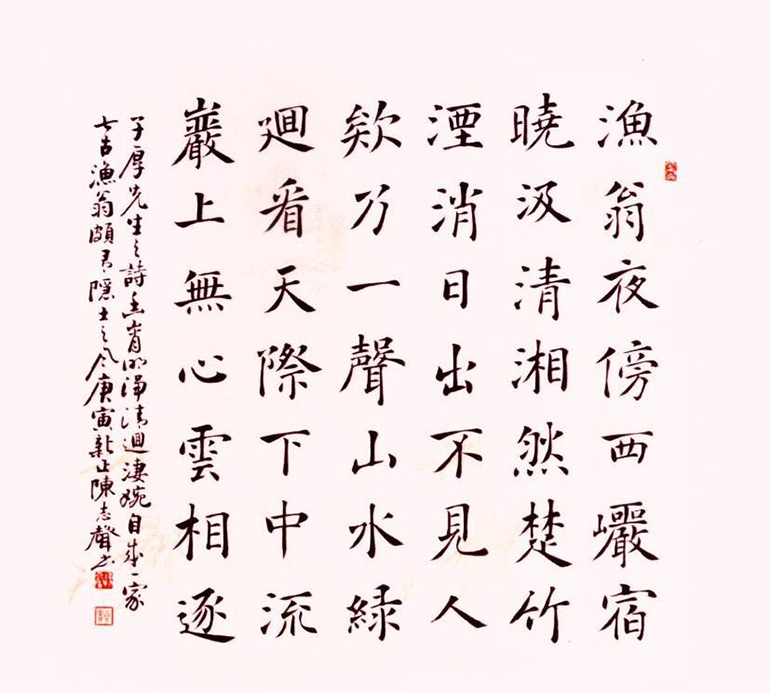 漁翁夜傍西巗宿
曉汲清湘然楚竹
湮消日出不見人
欸乃一聲山水緑
廻看天際下中流
巖上無心雲相逐
子厚先生之詩幽峭明淨清迴淒婉自成一家
七古漁翁頗有隱士之風庚寅新正陳志聲書